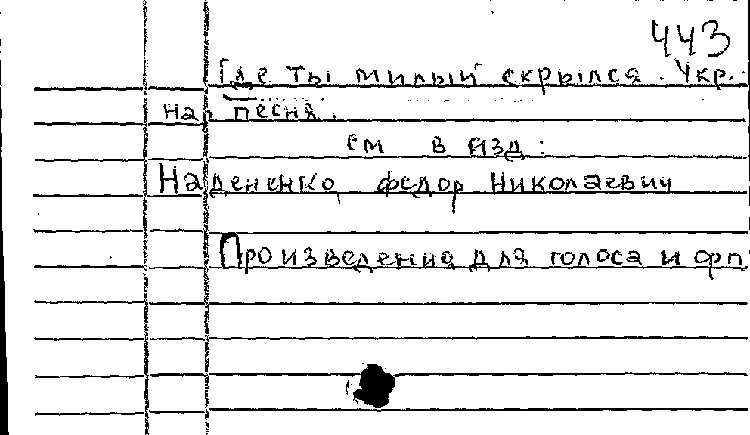 443
Где ты милый скрылся. Укр.
нар. песня.
см в изд:
Надененко, Федор Николаевич
Произведения для голоса и фп